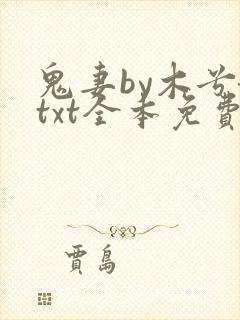 鬼妻by木兮
txt全本免費
賈島